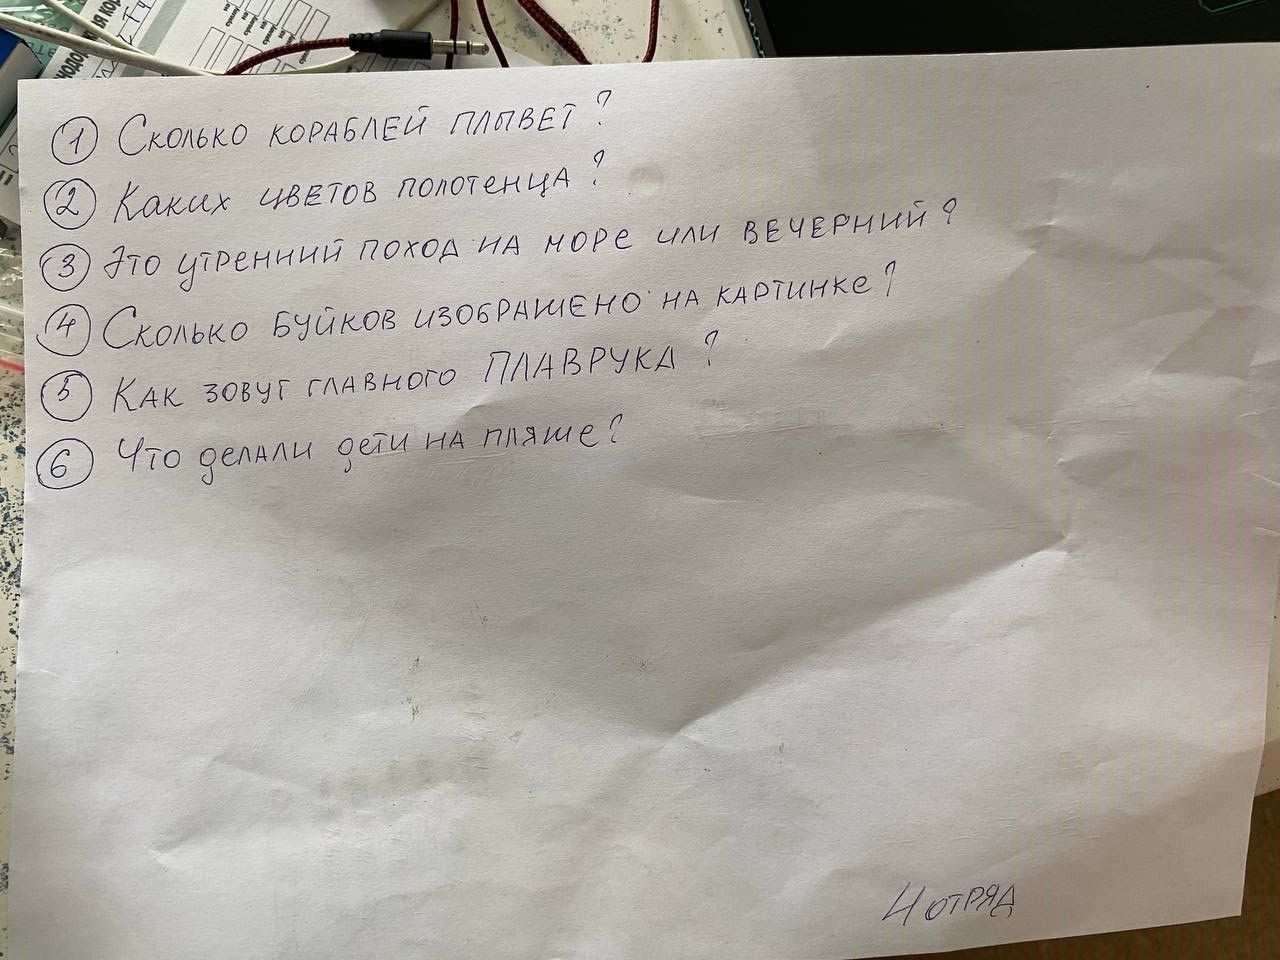 1 Сколько кораблей плывет?
2 Каких цветов полотенца?
3 Это утренний поход на море или вечерний?
4 Сколько буйков изображено на картинке?
5 Как зовут главного ПЛАВРУКА?
6 Что делали дети на пляже?
4 отряд